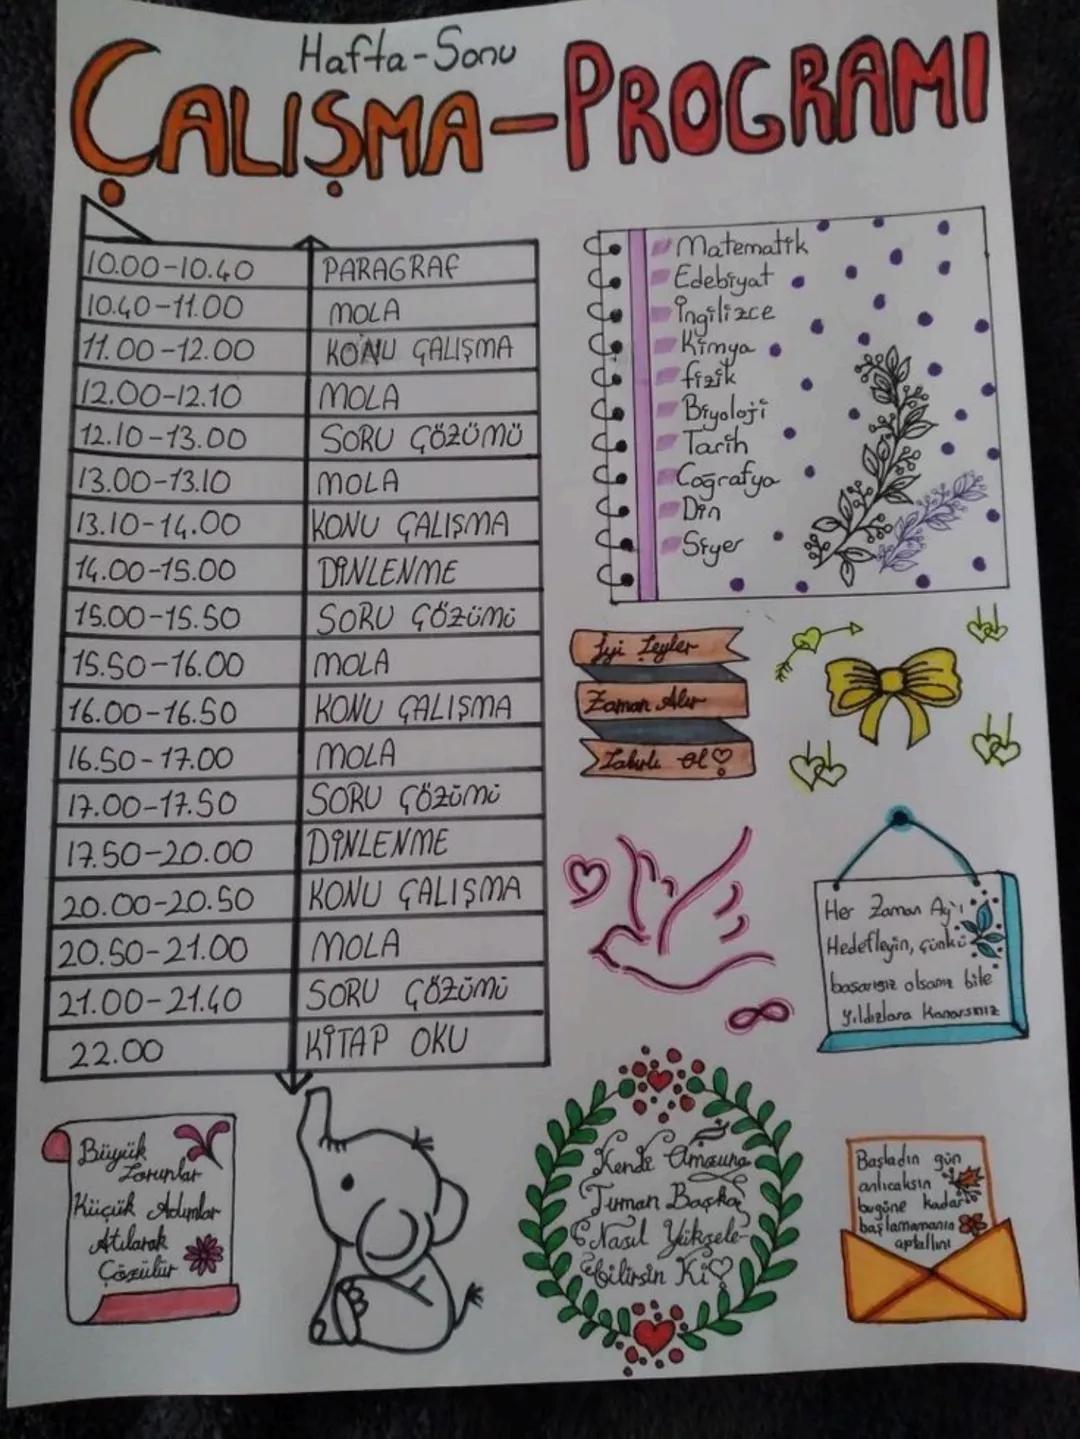 Hafta-Sonu
ÇALIŞMA-PROGRAMI
10.00-10.40 PARAGRAF
10.40-11.00 MOLA
11.00-12.00 KONU ÇALIŞMA
12.00-12.10 MOLA
12.10-13.00 SORU ÇÖZÜMÜ
13.00-13.10 MOLA
13.10-14.00 KONU ÇALIŞMA
14.00-15.00 DİNLENME
15.00-15.50 SORU ÇÖZÜMÜ
15.50-16.00 MOLA
16.00-16.50 KONU ÇALIŞMA
16.50-17.00 MOLA
17.00-17.50 SORU ÇÖZÜMÜ
17.50-20.00 DİNLENME
20.00-20.50 KONU ÇALIŞMA
20.50-21.00 MOLA
21.00-21.40 SORU ÇÖZÜMÜ
22.00 KİTAP OKU
Matematik
Edebiyat
İngilizce
Kimya
fizik
Biyoloji
Tarih
Coğrafya
Din
Siyer
İyi Şeyler
Zaman Alır
Sabırlı Ol
Her Zaman Ay'ı
Hedefleyin, çünkü
başarısız olsanız bile
yıldızlara konarsınız
Büyük
Sorunlar
Küçük Adımlar
Atılarak
Çözülür
Kendi Omzuna
Tırman Başka
Nasıl Yüksele-
bilirsin Ki
Başladın gün
anlıcaksın
bugüne kadar
başlamamanın
aptallını